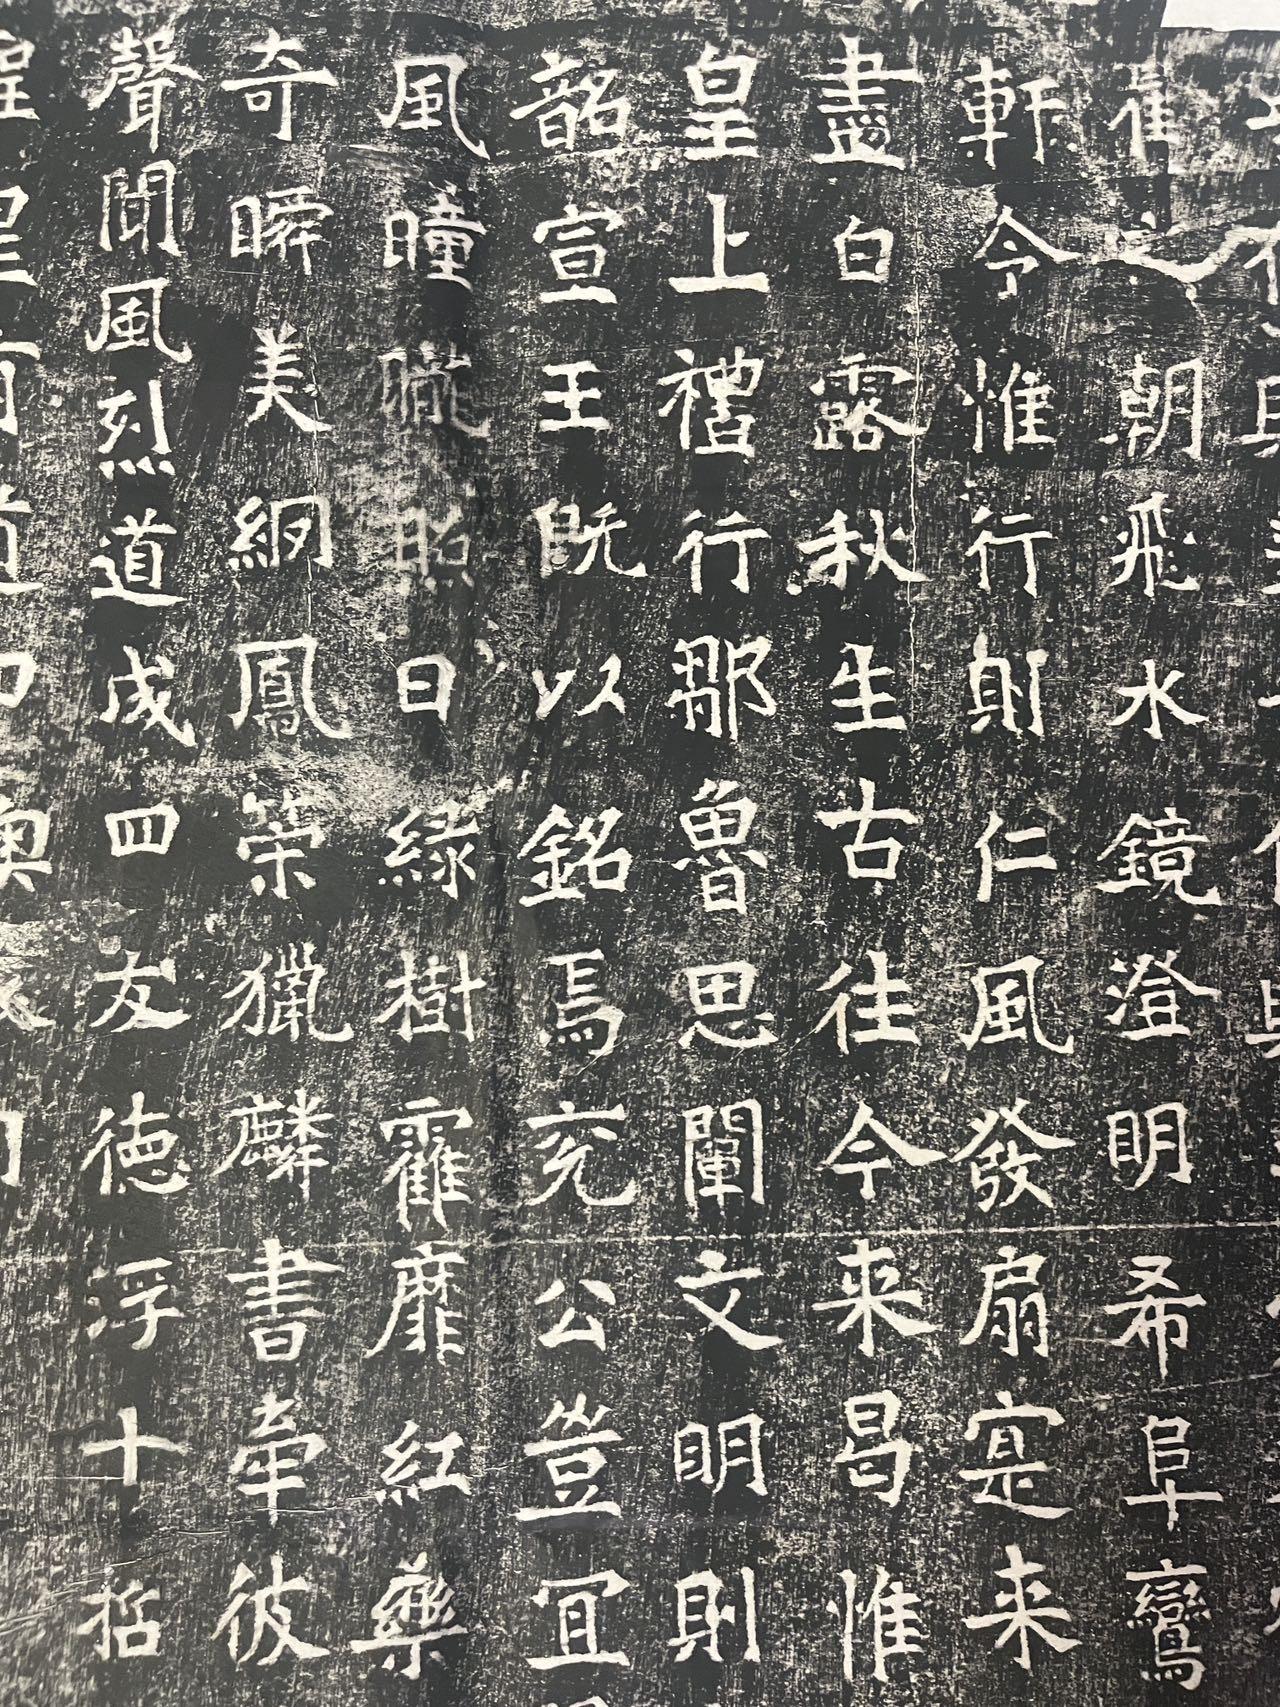 之朝飛水鏡澄明希阜鸞
軒令惟行仁風發扇寔来
盡白露秋生古往今来曷惟
皇上禮行鄒魯思闡文明則
韶宣王既以銘焉兖公豈宜
風曈曨照日緑樹靃靡紅藥
奇瞬美絧鳳策獵麟書牽彼
聲聞風烈道成四友德浮十哲